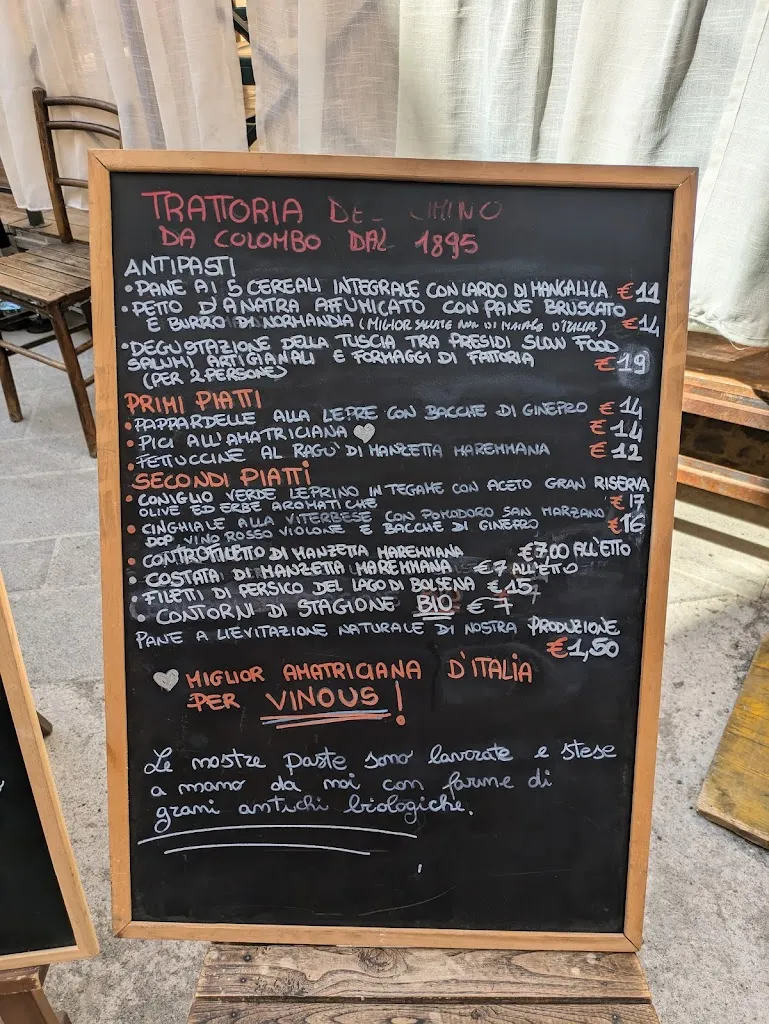 TRATTORIA DEL CIMINO
DA COLOMBO DAL 1895
ANTIPASTI
• PANE AI 5 CEREALI INTEGRALE CON LARDO DI MANGALICA €11
• PETTO D'ANATRA AFFUMICATO CON PANE BRUSCATO
E BURRO DI NORMANDIA (MIGLIOR SALUTE DI MAIALE D'ITALIA) €14
• DEGUSTAZIONE DELLA TUSCIA TRA PRESIDI SLOW FOOD
SALUMI ARTIGIANALI E FORMAGGI DI FATTORIA €19
(PER 2 PERSONE)
PRIMI PIATTI
• PAPPARDELLE ALLA LEPRE CON BACCHE DI GINEPRO €14
• PICI ALL'AMATRICIANA €14
• FETTUCCINE AL RAGU' DI MANZETTA MAREMMANA €12
SECONDI PIATTI
• CONIGLIO VERDE LEPRINO IN TEGAME CON ACETO GRAN RISERVA
OLIVE ED ERBE AROMATICHE €17
• CINGHIALE ALLA VITERBESE CON POMODORO SAN MARZANO
DOP VINO ROSSO VIOLONE E BACCHE DI GINEPRO €16
• CONTROFILETTO DI MANZETTA MAREMMANA €7,00 ALL'ETTO
• COSTATA DI MANZETTA MAREMMANA €7 ALL'ETTO
• FILETTI DI PERSICO DEL LAGO DI BOLSENA €15
• CONTORNI DI STAGIONE BIO €7
PANE A LIEVITAZIONE NATURALE DI NOSTRA PRODUZIONE
€1,50
MIGLIOR AMATRICIANA D'ITALIA
PER VINOUS!
Le nostre paste sono lavorate e stese
a mano da noi con farine di
grani antichi biologiche.